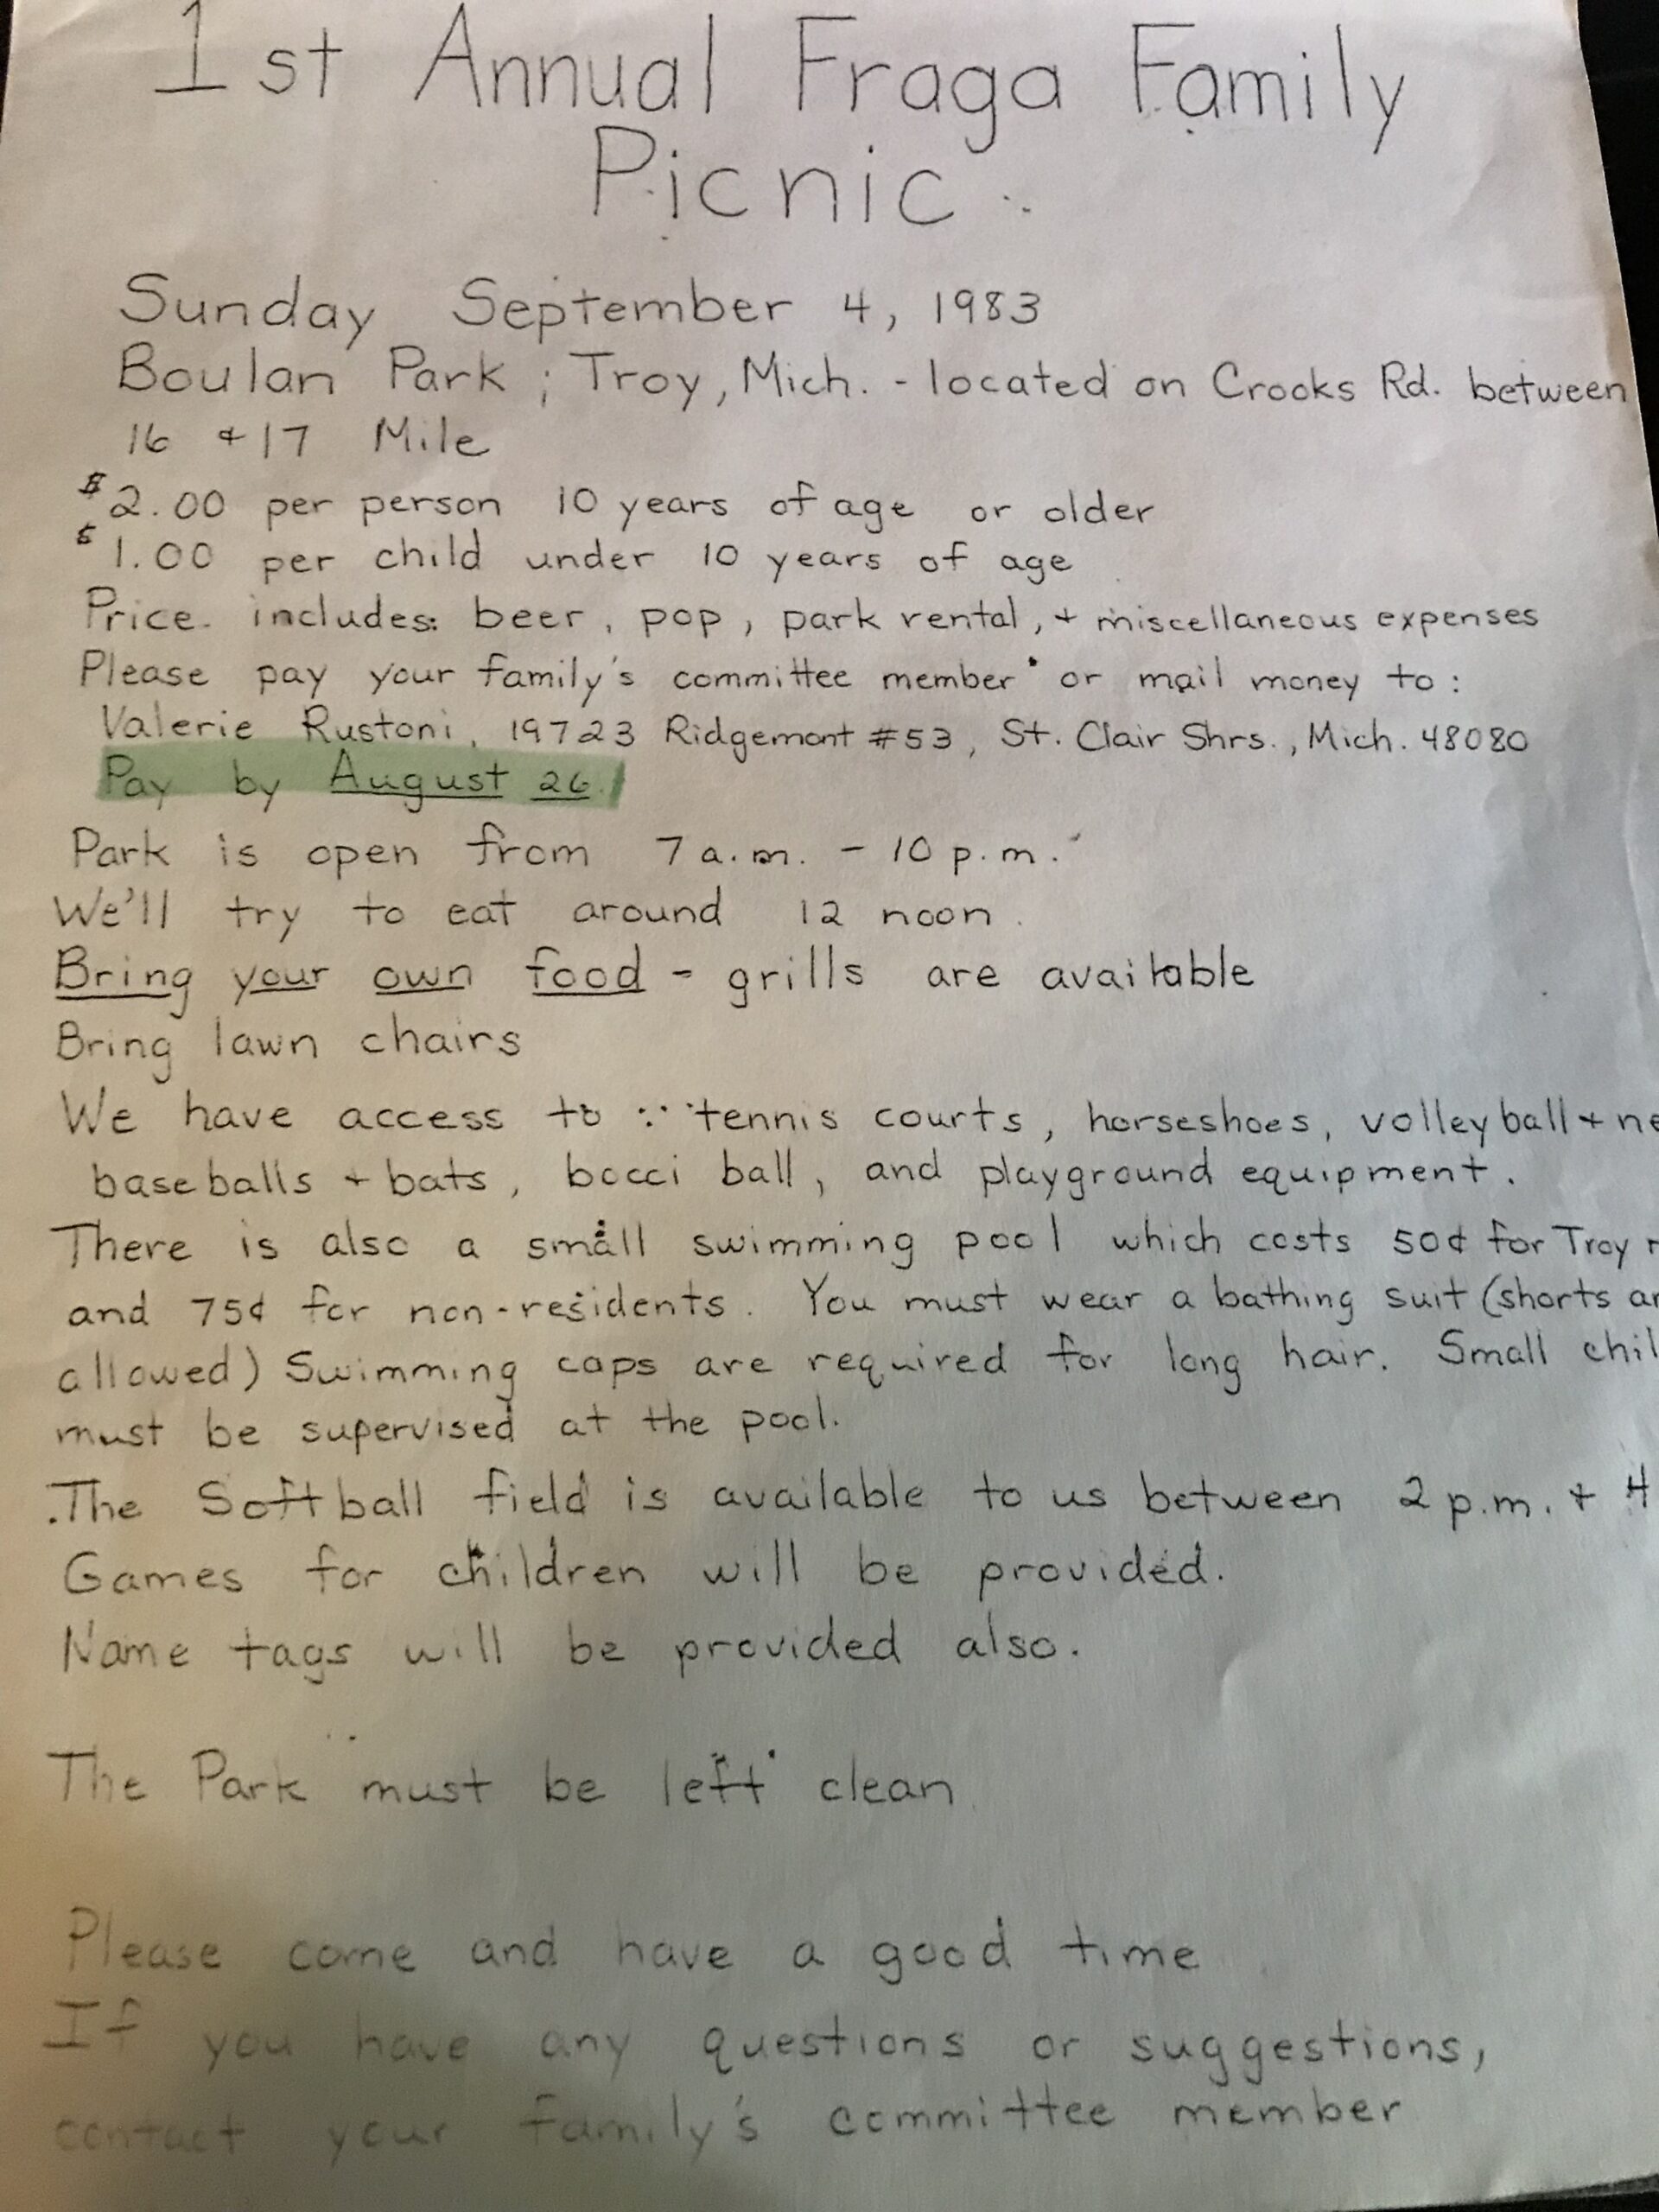 1st Annual Fraga Family
Picnic
Sunday September 4, 1983
Boulan Park ; Troy, Mich. - located on Crooks Rd. between
16 + 17 Mile
$2.00 per person 10 years of age or older
$1.00 per child under 10 years of age
Price includes: beer, pop, park rental, + miscellaneous expenses
Please pay your family's committee member or mail money to:
Valerie Rustoni, 19723 Ridgemont #53, St. Clair Shrs., Mich. 48080
Pay by August 26.
Park is open from 7 a.m. - 10 p.m.
We'll try to eat around 12 noon.
Bring your own food - grills are available
Bring lawn chairs
We have access to : tennis courts, horseshoes, volleyball +
baseballs + bats, bocci ball, and playground equipment.
There is also a small swimming pool which costs 50¢ for Troy
and 75¢ for non-residents. You must wear a bathing suit (shorts
allowed) Swimming caps are required for long hair. Small
must be supervised at the pool.
The Softball field is available to us between 2 p.m. + 4
Games for children will be provided.
Name tags will be provided also.
The Park must be left clean.
Please come and have a good time
If you have any questions or suggestions,
contact your family's committee member